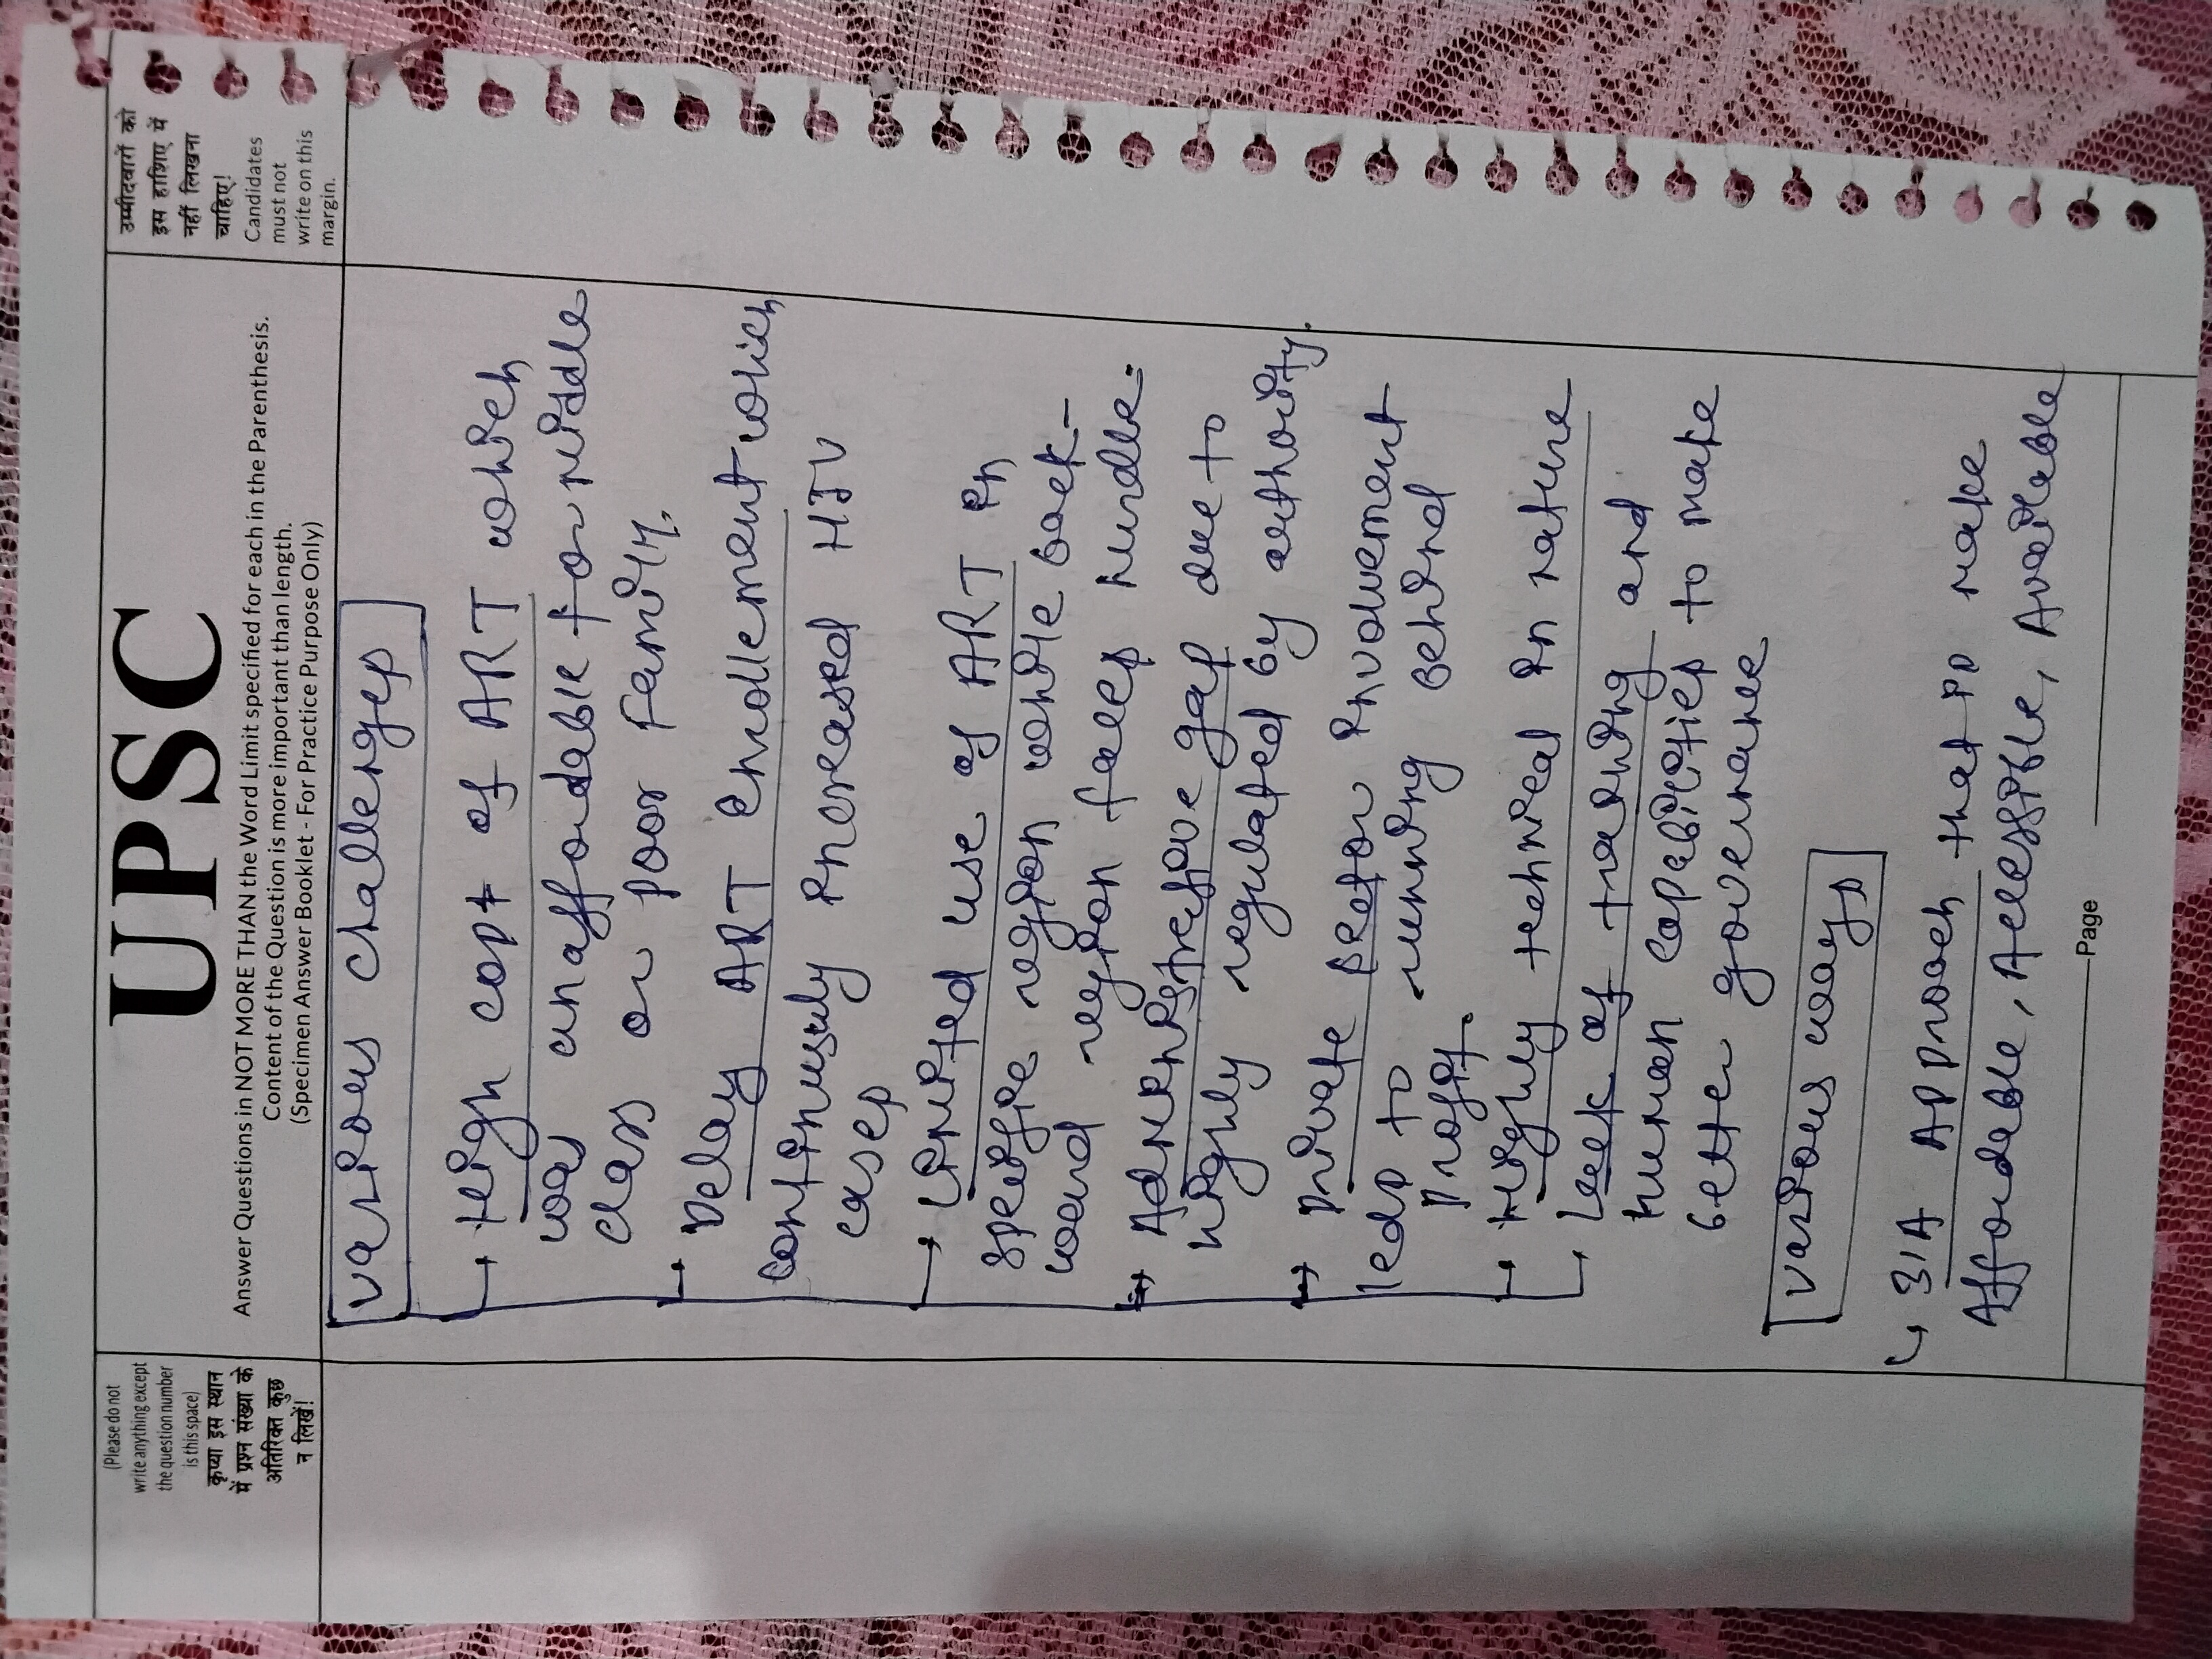 (Please do not
write anything except
the question number
is this space)
कृप्या इस स्थान
में प्रश्न संख्या के
अतिरिक्त कुछ
न लिखें!
UPSC
Answer Questions in NOT MORE THAN the Word Limit specified for each in the Parenthesis.
Content of the Question is more important than length.
(Specimen Answer Booklet - For Practice Purpose Only)
उम्मीदवारों को
इस हाशिए में
नहीं लिखना
चाहिए!
Candidates
must not
write on this
margin.
various challenges
→ High cost of ART which
was unaffordable for middle
class or poor family.
→ Delay ART Enrollement which
continuusly increased HIV
cases
→ Limited use of ART in
specific region while back-
ward region faces hurdle=
→ Administrative gap due to
highly regulated by authority.
→ Private sector involvement
leds to running behind
profit.
→ Highly technical in nature
→ Lack of training and
human capabilities to make
better governance
various ways
→ 3'A Approach that is make
Affordable, Accessible, Available
Page